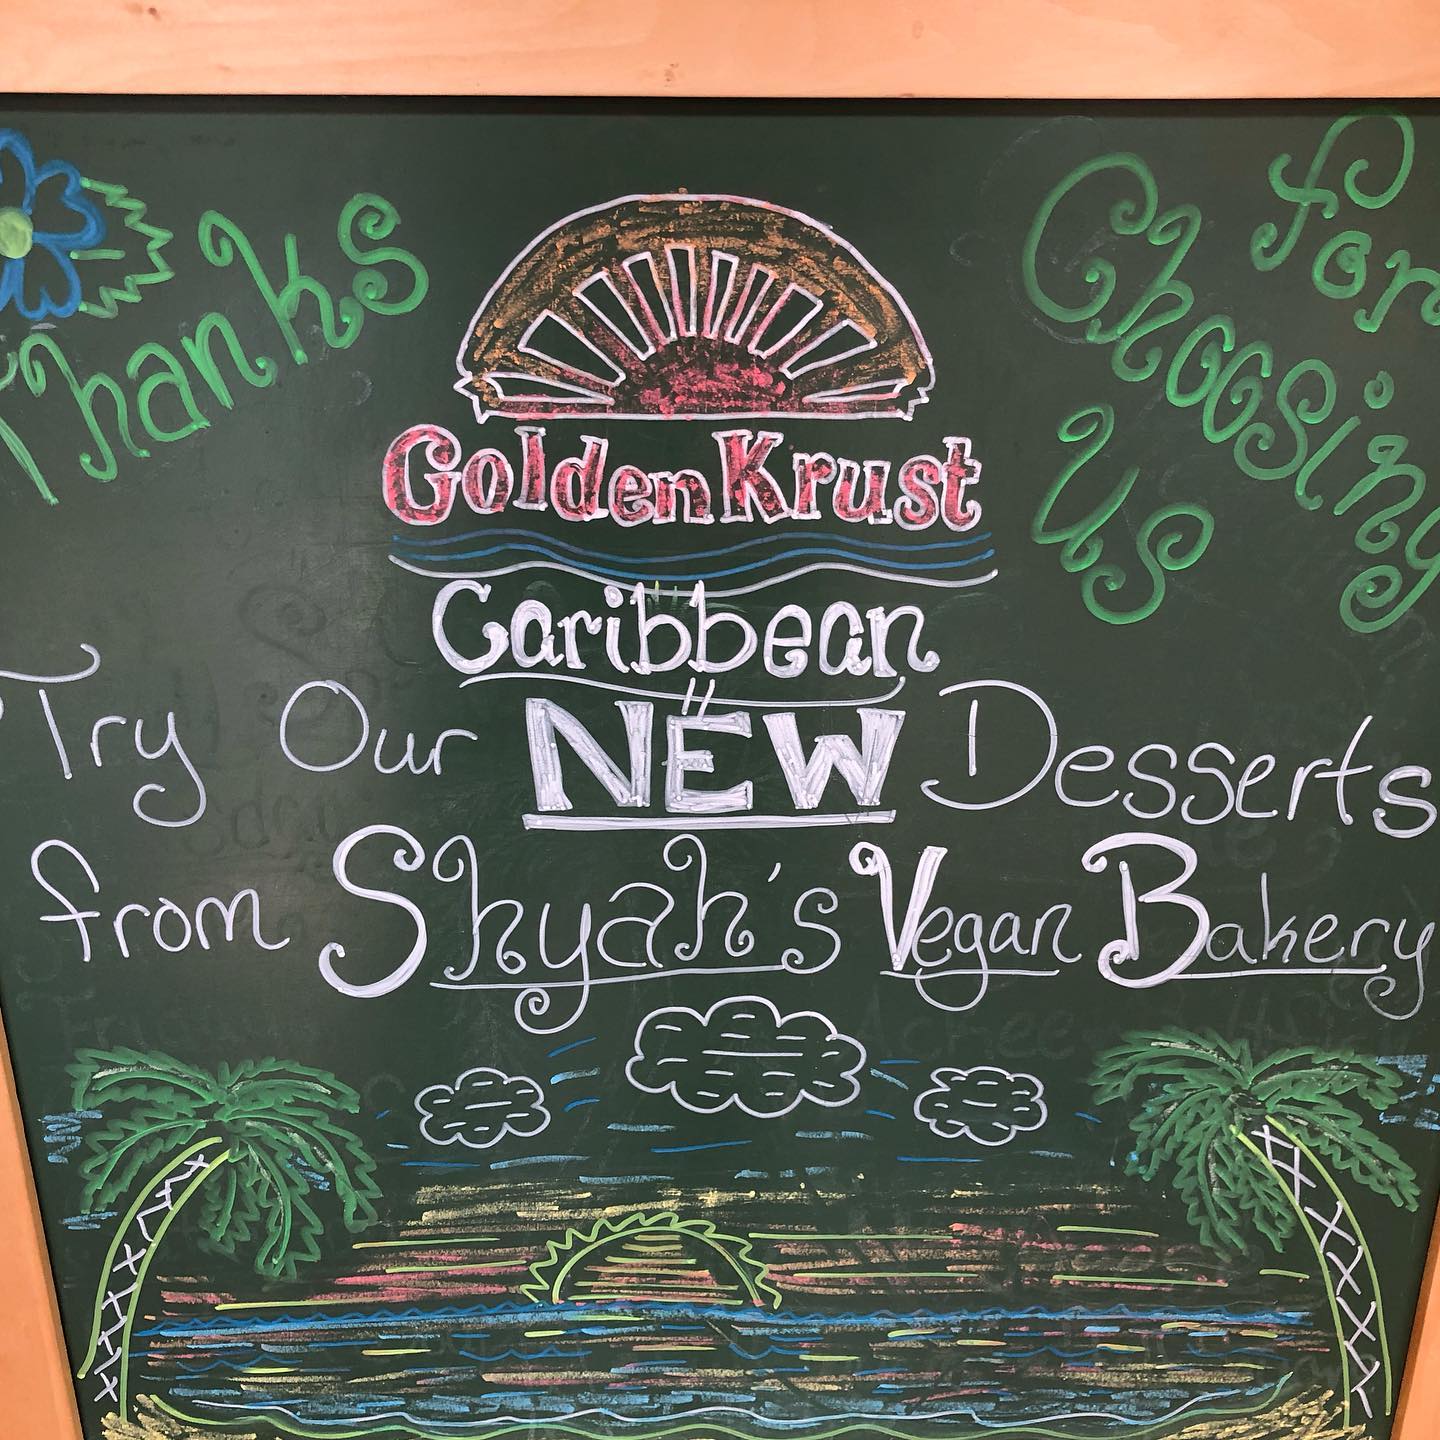 Thanks
for
Choosing
Us
GoldenKrust
Caribbean
Try Our NEW Desserts
from Shyah's Vegan Bakery